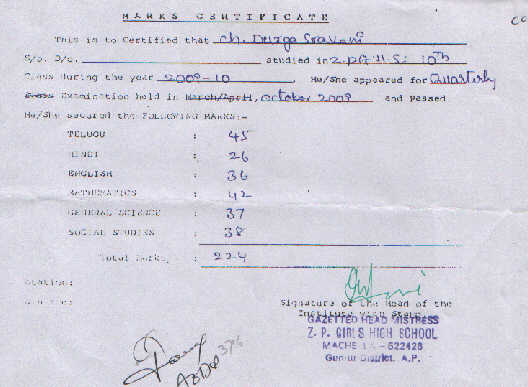 MARKS CERTIFICATE
This is to Certified that Ch. Durga Sravani
S/o. D/o. studied in Z.P.G.H.S. 10th
Class during the year 2009-10 He/She appeared for Quarterly
Examination held in March/April, October 2009 and Passed
He/She secured the FOLLOWING MARKS:-
TELUGU : 45
HINDI : 26
ENGLISH : 36
MATHEMATICS : 42
GENERAL SCIENCE : 37
SOCIAL STUDIES : 38
Total Marks : 224
Station:
Signature of the Head of the
Institute with Stamp
GAZETTED HEAD MISTRESS
Z. P. GIRLS HIGH SCHOOL
522426
Guntur District, A.P.